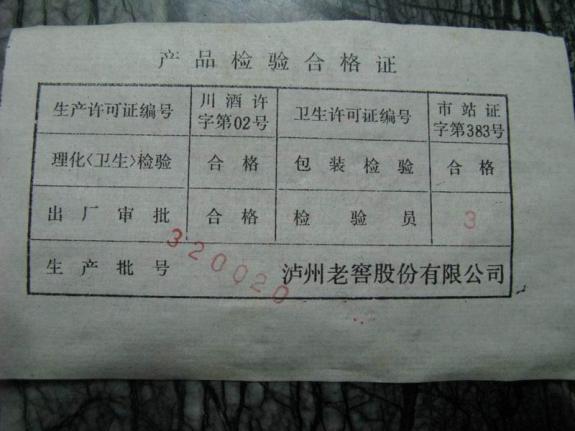 产品检验合格证
生产许可证编号 川酒许字第02号 卫生许可证编号 市站证字第383号
理化<卫生>检验 合格 包装检验 合格
出厂审批 合格 检验员 3
生产批号 泸州老窖股份有限公司
320020